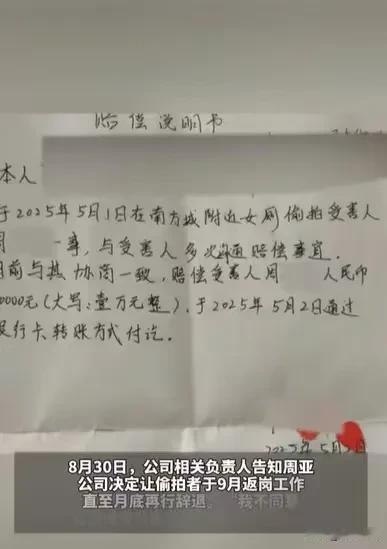 赔偿说明书
本人
于2025年5月1日在南方城附近女厕偷拍受害人
周 一事,与受害人多次沟通赔偿事宜.
目前与其协商一致,赔偿受害人周 人民币
10000元(大写:壹万元整),于2025年5月2日通过
银行卡转账方式付讫.
2025年5月2日
8月30日,公司相关负责人告知周亚
公司决定让偷拍者于9月返岗工作
直至月底再行辞退。“我不同意